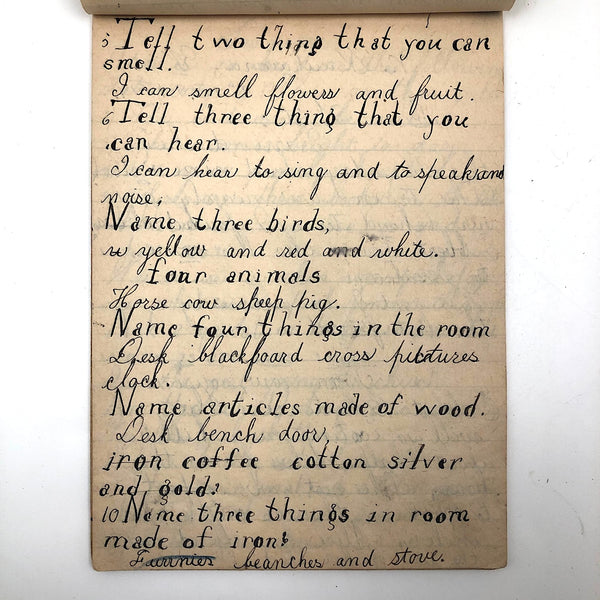 5 Tell two thing that you can
smell.
I can smell flowers and fruit.
6 Tell three thing that you
can hear.
I can hear to sing and to speak and
noise.
Name three birds,
yellow and red and white.
four animals
Horse cow sheep pig.
Name four things in the room
Desk blackboard cross pictures
clock.
Name articles made of wood.
Desk bench door,
iron coffee cotton silver
and gold.
10 Name three things in room
made of iron.
beanches and stove.